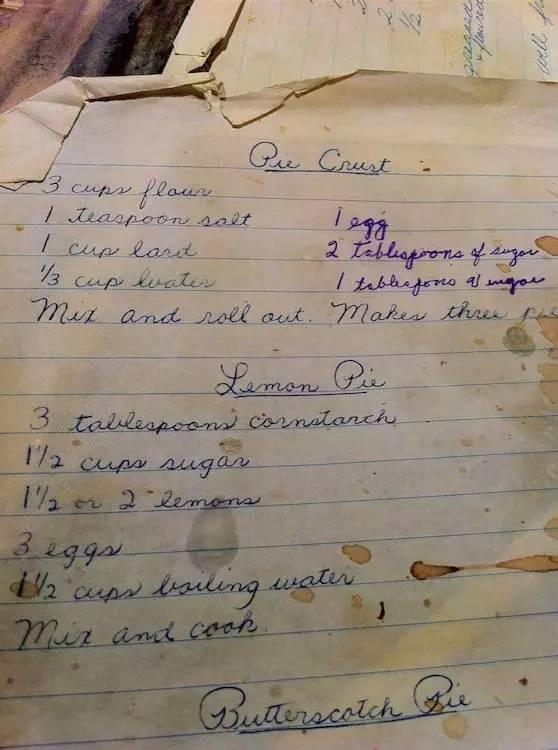 2
1/2
greased
+ floured
Pie Crust
3 cups flour
1 teaspoon salt 1 egg
1 cup lard 2 tablespoons of sugar
1/3 cup water 1
Mix and roll out. Makes three
Lemon Pie
3 tablespoons cornstarch
1 1/2 cups sugar
1 1/2 or 2 lemons
3 eggs
1 1/2 cups boiling water
Mix and cook.
Butterscotch Pie